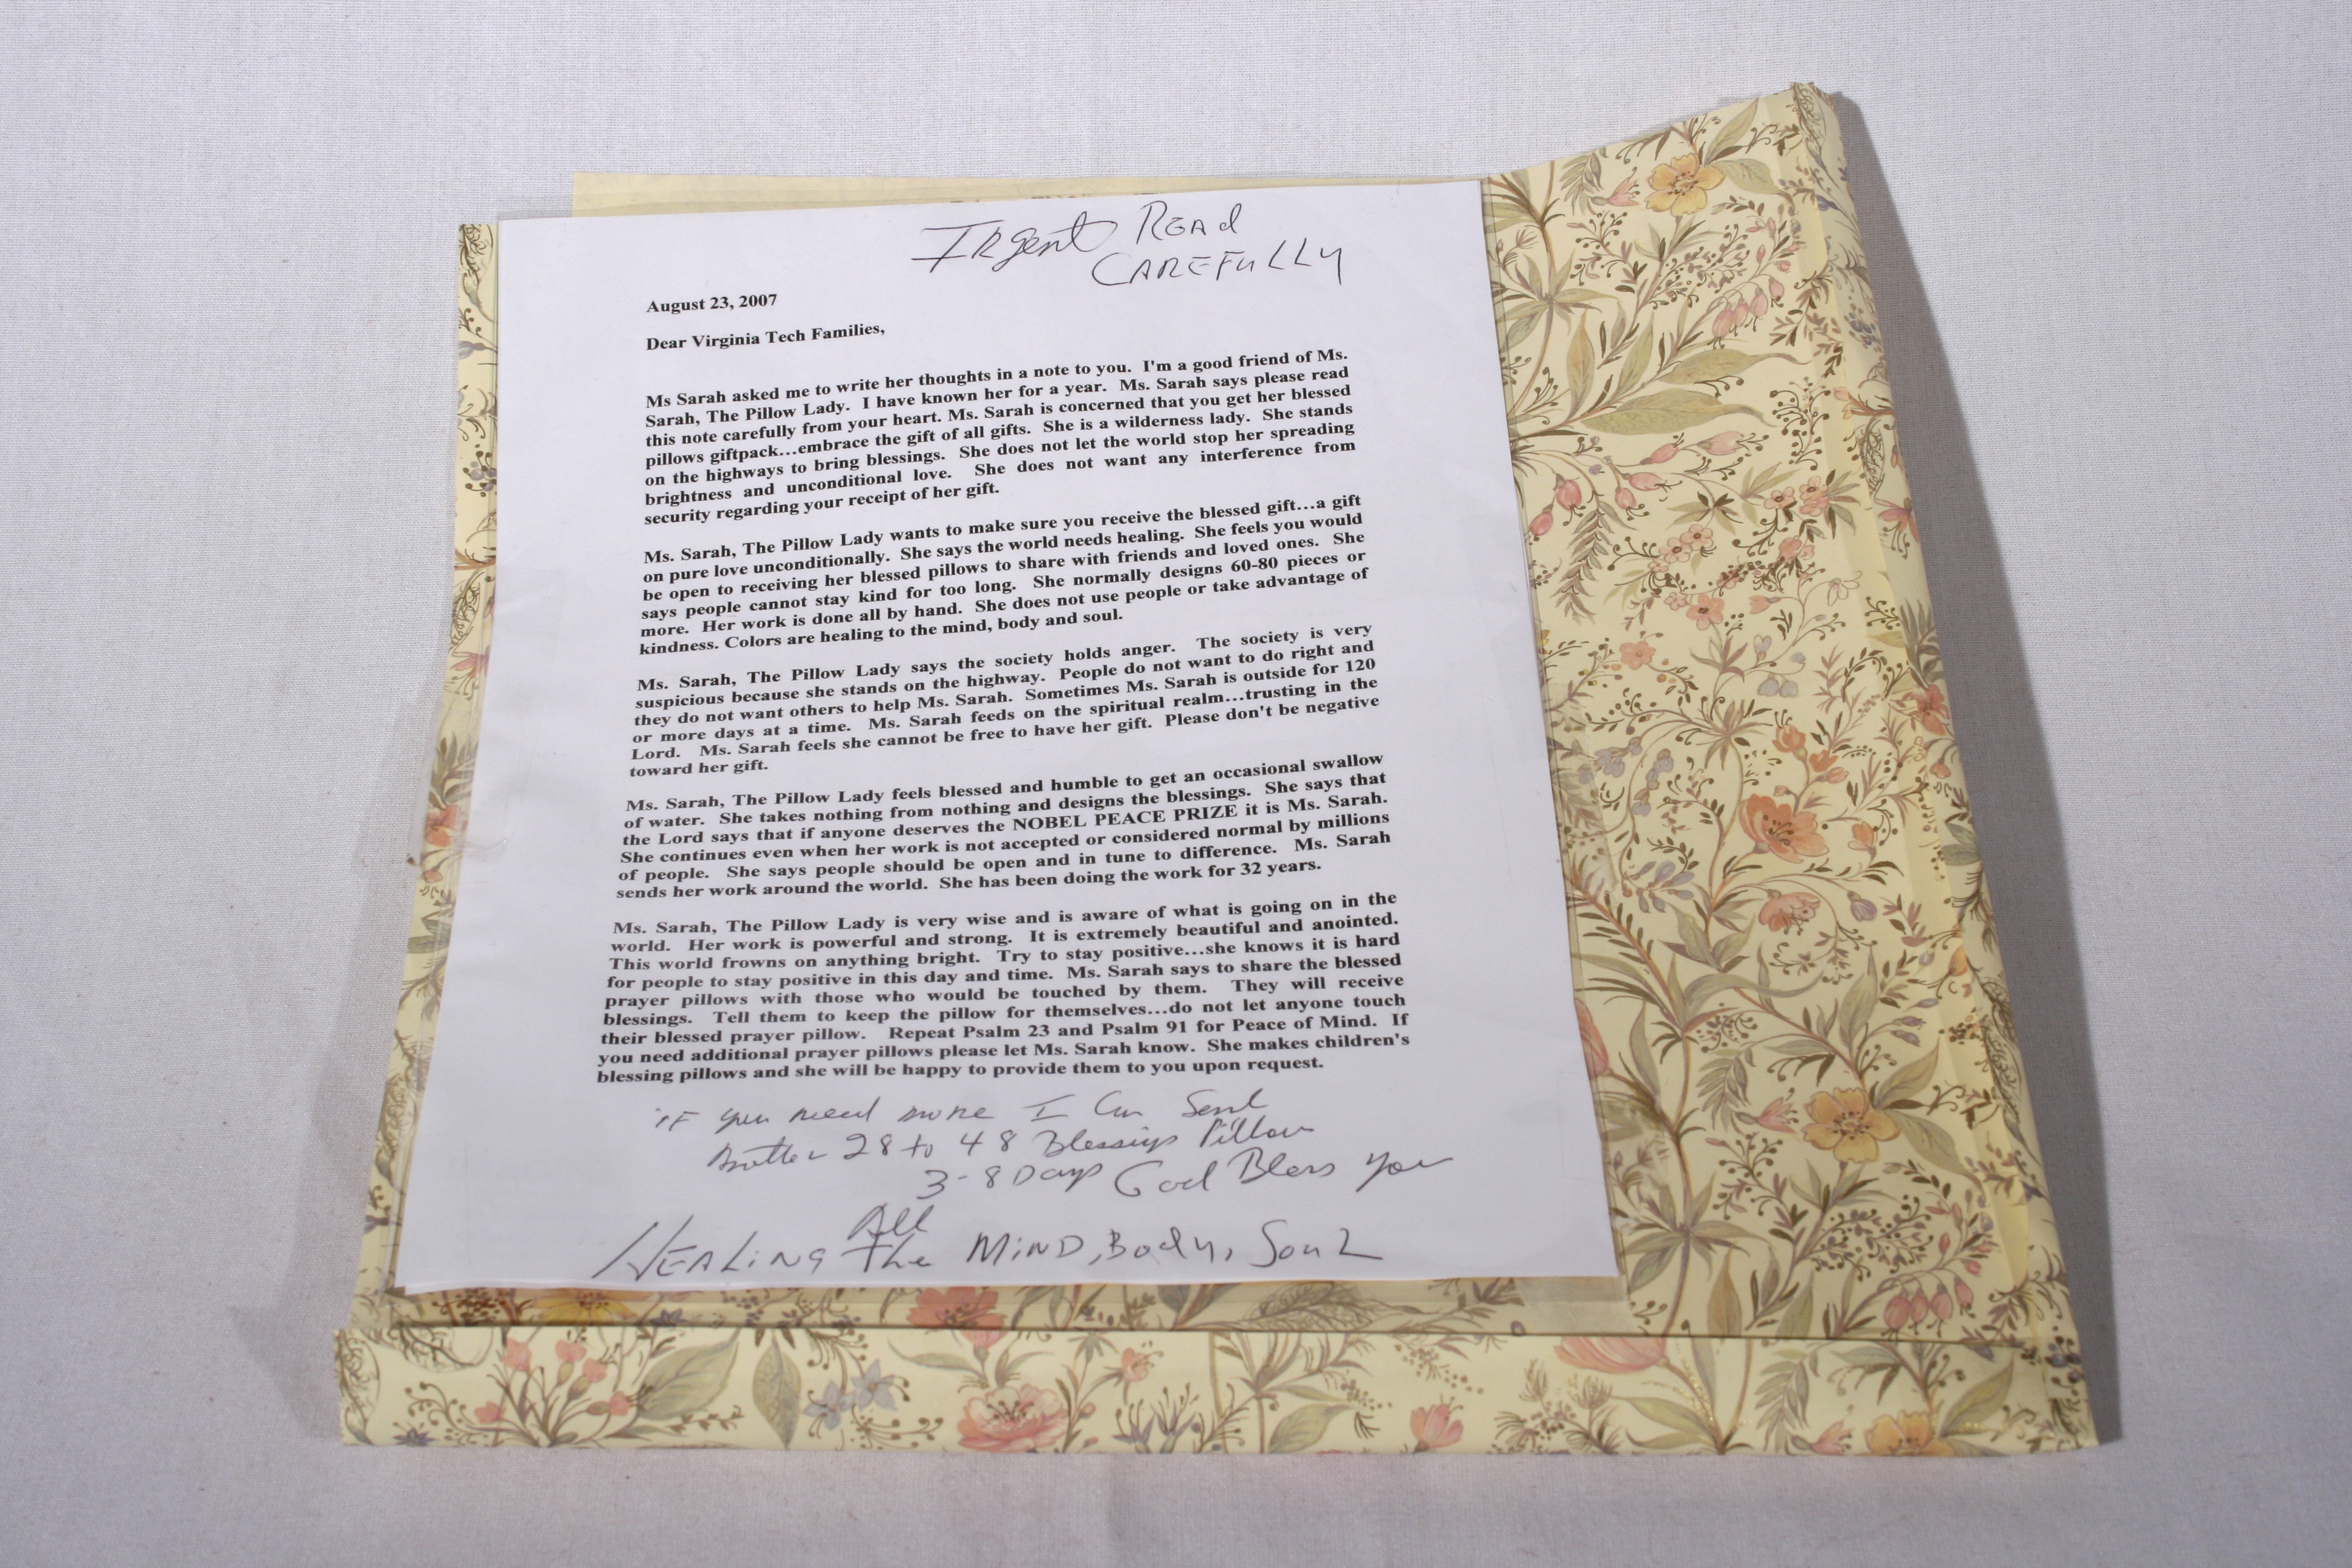 IRgent READ
CAREFULLY
August 23, 2007
Dear Virginia Tech Families,
Ms Sarah asked me to write her thoughts in a note to you. I'm a good friend of Ms.
Sarah, The Pillow Lady. I have known her for a year. Ms. Sarah says please read
this note carefully from your heart. Ms. Sarah is concerned that you get her blessed
pillows giftpack...embrace the gift of all gifts. She is a wilderness lady. She stands
on the highways to bring blessings. She does not let the world stop her spreading
brightness and unconditional love. She does not want any interference from
security regarding your receipt of her gift.
Ms. Sarah, The Pillow Lady wants to make sure you receive the blessed gift...a gift
on pure love unconditionally. She says the world needs healing. She feels you would
be open to receiving her blessed pillows to share with friends and loved ones. She
says people cannot stay kind for too long. She normally designs 60-80 pieces or
more. Her work is done all by hand. She does not use people or take advantage of
kindness. Colors are healing to the mind, body and soul.
Ms. Sarah, The Pillow Lady says the society holds anger. The society is very
suspicious because she stands on the highway. People do not want to do right and
they do not want others to help Ms. Sarah. Sometimes Ms. Sarah is outside for 120
or more days at a time. Ms. Sarah feeds on the spiritual realm...trusting in the
Lord. Ms. Sarah feels she cannot be free to have her gift. Please don't be negative
toward her gift.
Ms. Sarah, The Pillow Lady feels blessed and humble to get an occasional swallow
of water. She takes nothing from nothing and designs the blessings. She says that
the Lord says that if anyone deserves the NOBEL PEACE PRIZE it is Ms. Sarah.
She continues even when her work is not accepted or considered normal by millions
of people. She says people should be open and in tune to difference. Ms. Sarah
sends her work around the world. She has been doing the work for 32 years.
Ms. Sarah, The Pillow Lady is very wise and is aware of what is going on in the
world. Her work is powerful and strong. It is extremely beautiful and anointed.
This world frowns on anything bright. Try to stay positive...she knows it is hard
for people to stay positive in this day and time. Ms. Sarah says to share the blessed
prayer pillows with those who would be touched by them. They will receive
blessings. Tell them to keep the pillow for themselves...do not let anyone touch
their blessed prayer pillow. Repeat Psalm 23 and Psalm 91 for Peace of Mind. If
you need additional prayer pillows please let Ms. Sarah know. She makes children's
blessing pillows and she will be happy to provide them to you upon request.
iF you need more I Can Send
28 to 48 Blessings Pillow
3-8 Days God Bless you
All
HEALING The MiND, Body, SouL